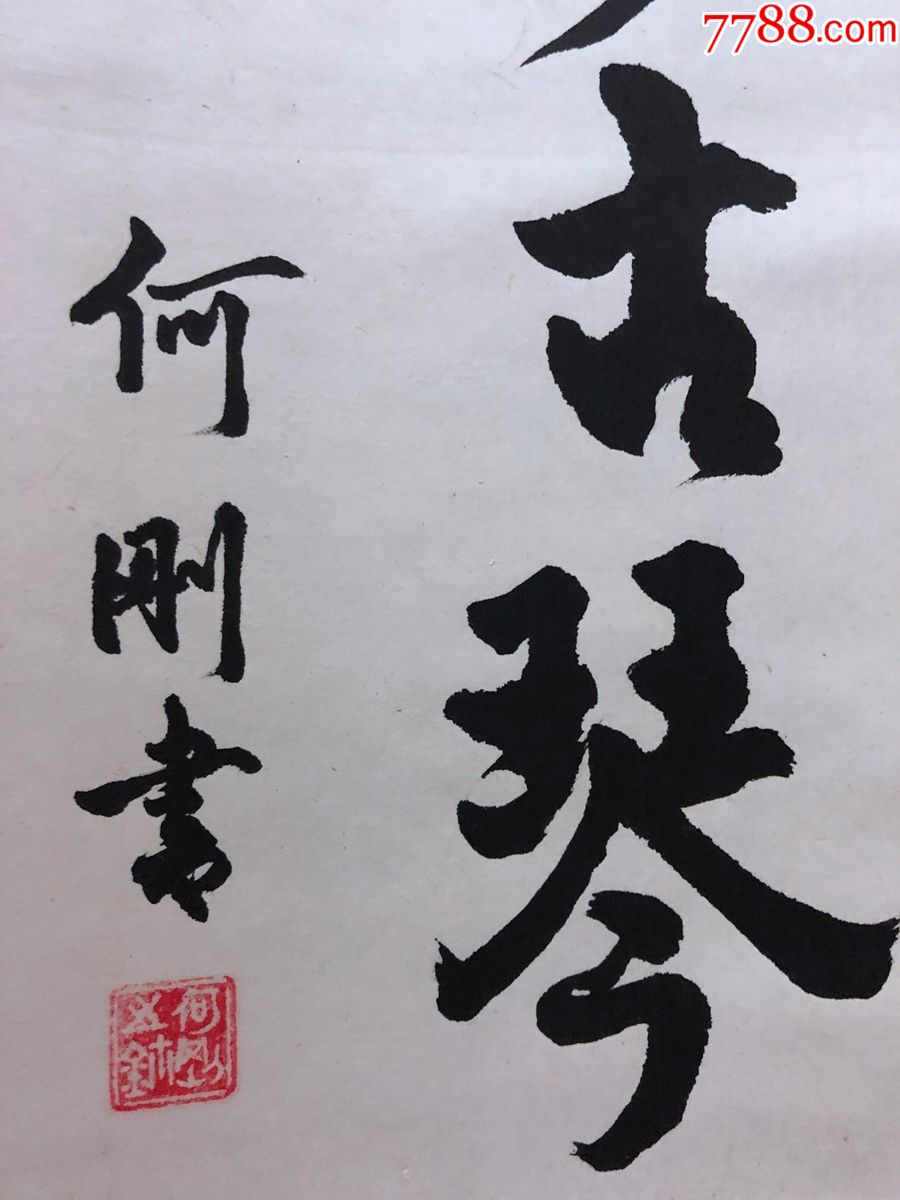 7788.com
古琴
何刚書
何刚